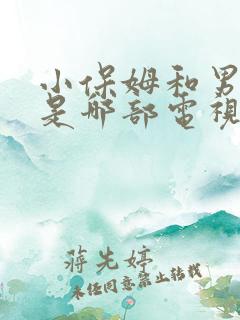 小保姆和男
是哪部電視
蔣先婷
未經同意禁止轉載